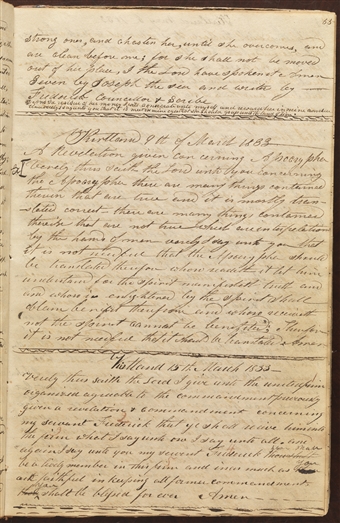 55
strong one, and chasten her, until she overcomes, and
are clean before me; for she shall not be moved
out of her place, I the Lord have spoken it Amen
Given by Joseph the seer and written by
Frederick Councellor & Scribe
Kirtland 9th of March 1833
A Revelation given concerning Apocrypha
verily thus saith the Lord unto you concerning
the Apocrypha there are many things contained
therein that are true and it is mostly trans-
lated correct— there are many things contained
therein that are not true which are interpolations
by the hands of men verely I say unto you that
it is not needful that the Apocrypha should
be translated therefore whoso readeth it let him
understand for the spirit manifesteth truth and
and whoso is enlightened by the spirit shall
obtain benefit therefrom and whoso receiveth
not the spirit cannot be benefited therefore
it is not needful that it should be translated Amen
Kirtland 15th March 1833—
Verily thus saith the Lord I give unto the united firm
organized agreeable to the commandment previously
given a revelation & commandment concerning
my servant Fredrick that ye shall receive him into
the firm what I say unto one I say unto all and
again I say unto you my servent Frederick you shall
be a lively member in this firm and inasmuch as
are faithful in keeping all former commandment
shall be blessed for ever Amen